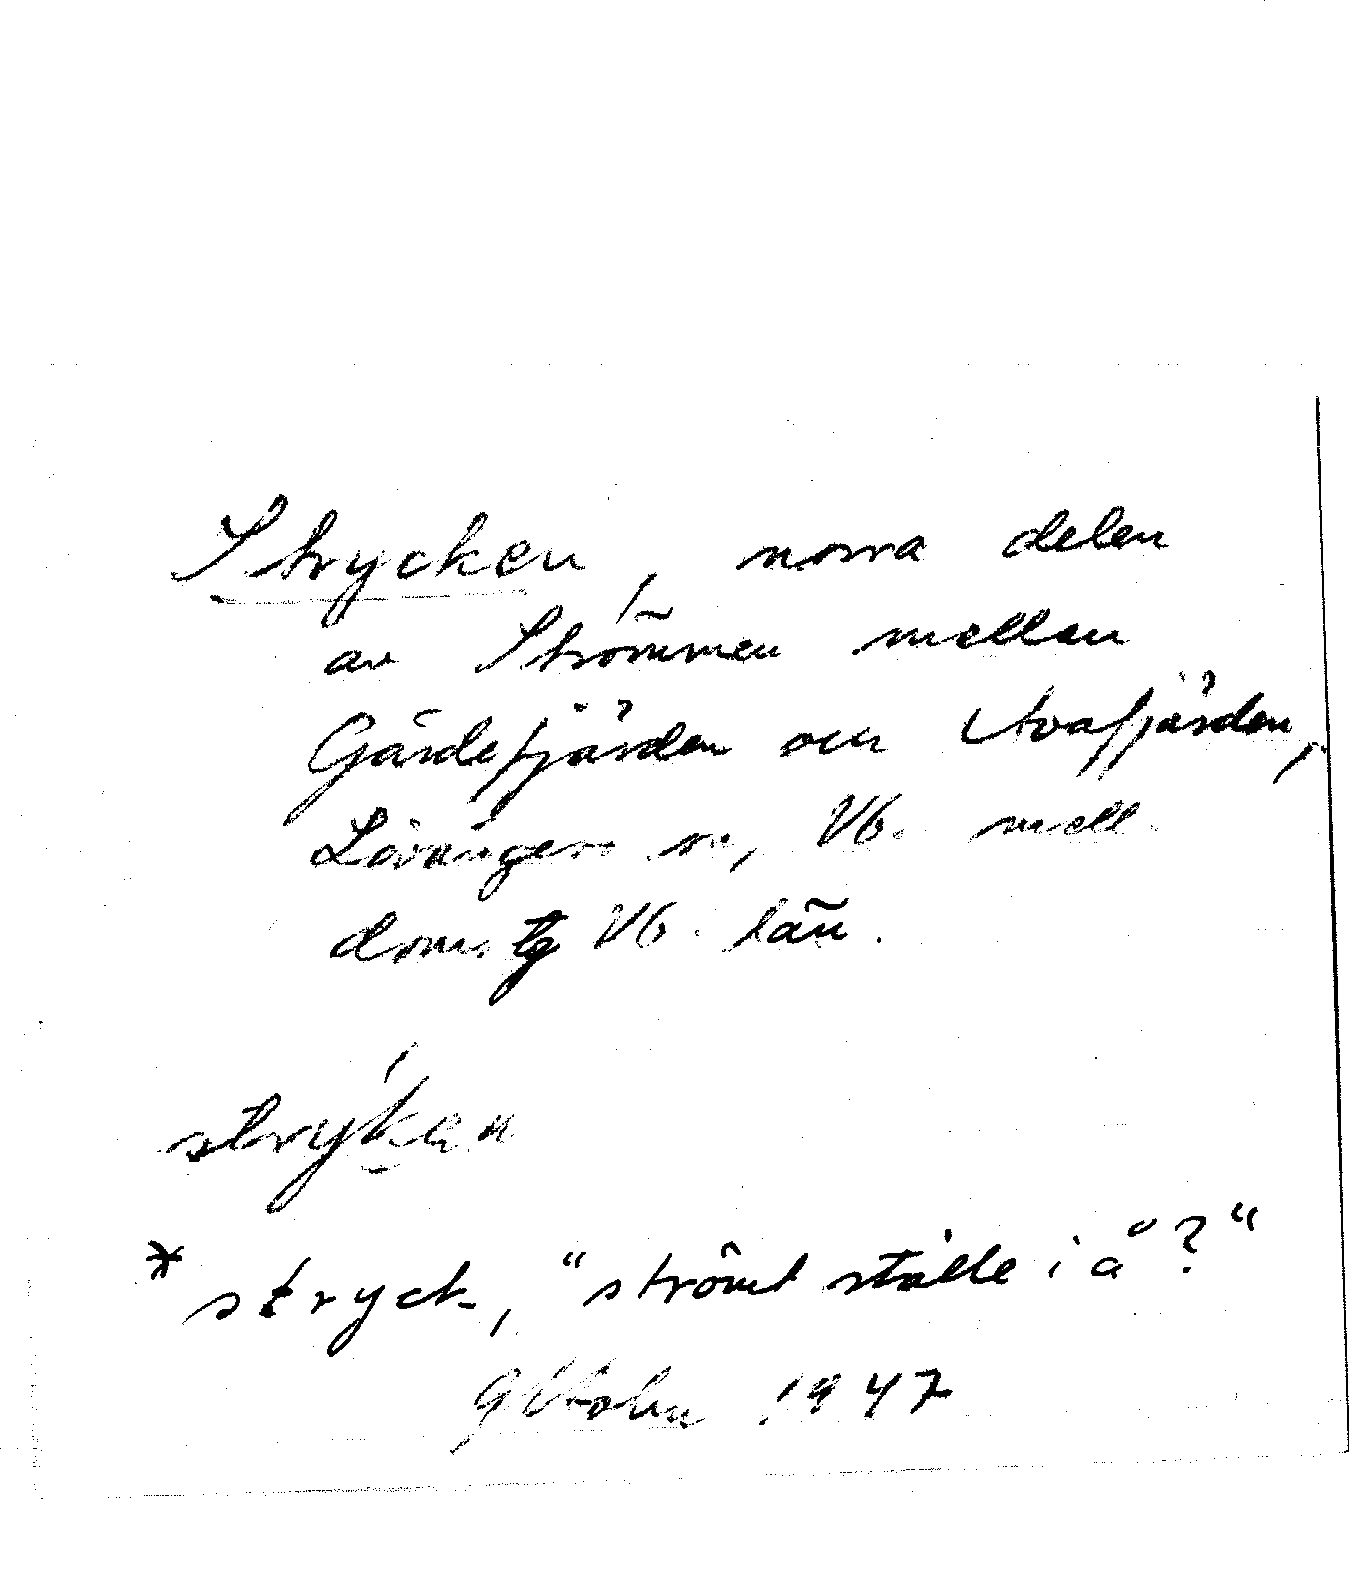 Strycken, norra delen
av Strömmen mellan
Gärdefjärden och Avafjärden,
Lövångers sn, Vb. mell.
doms tg Vb. län.
strýken
* stryck, "strömt ställe i å?"
G Holm 1947